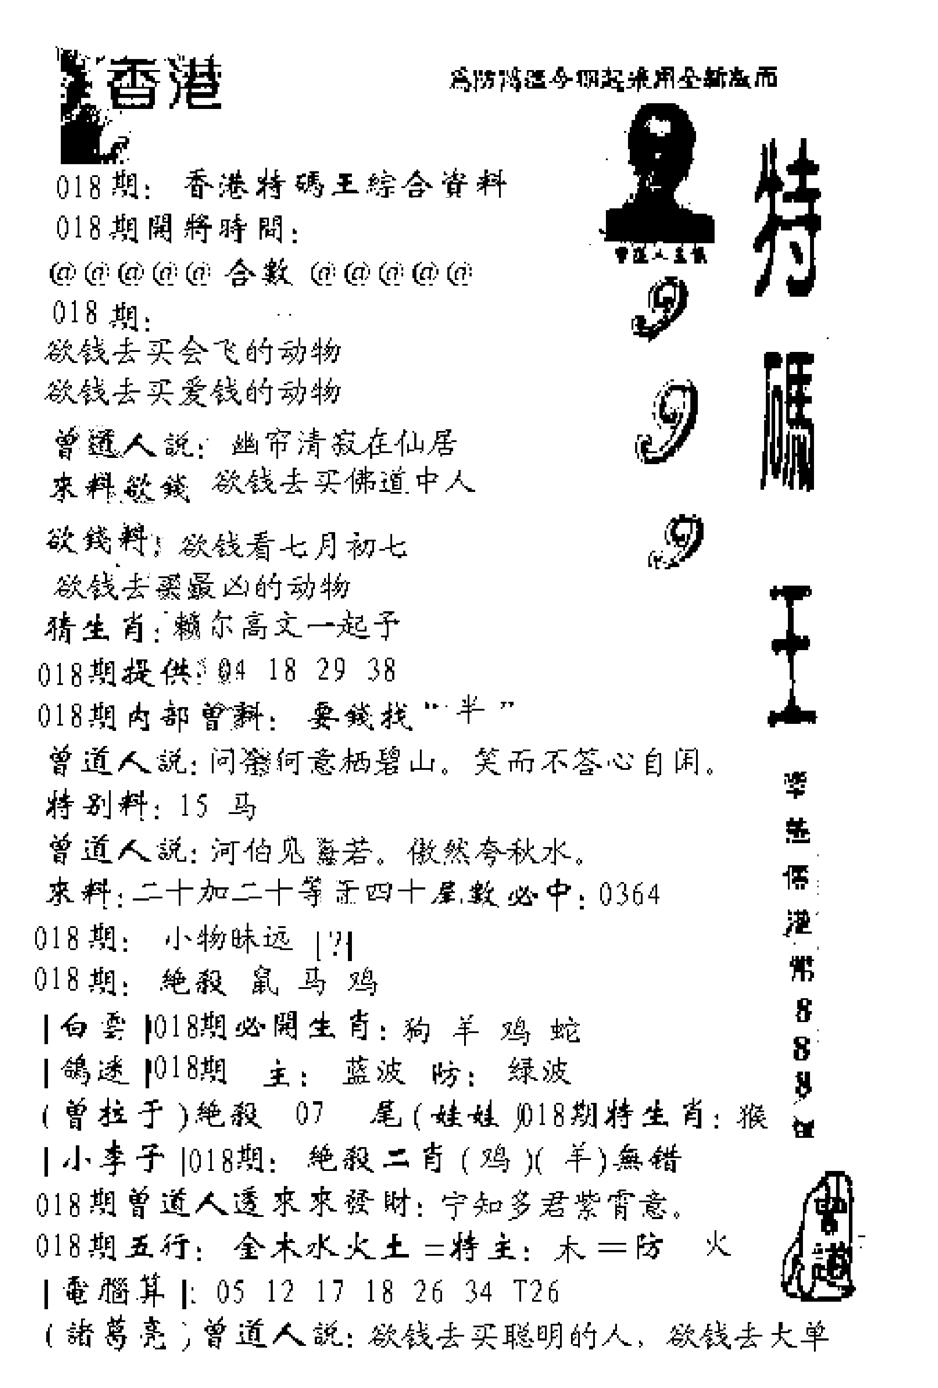 香港
為防 今期起采用全新版面
018期：香港特碼王綜合資料
018期開將時間：
@@@@@合數@@@@@
018期：
欲钱去买会飞的动物
欲钱去买爱钱的动物
曾道人説：幽帘清寂在仙居
來料欲錢 欲钱去买佛道中人
欲錢料：欲钱看七月初七
欲钱去买最凶的动物
猜生肖：籁尔高文一起予
018期提供：04 18 29 38
018期内部曾料：要錢找“半”
曾道人説：问 何意栖碧山。笑而不答心自闲。
特别料：15 马
曾道人説：河伯见海若。傲然夸秋水。
來料：二十加二十等于四十尾數必中：0364
018期：小物昧远 |?|
018期：絶殺 鼠 马 鸡
|白雲|018期必開生肖：狗 羊 鸡 蛇
|鴿迷|018期 主：蓝波 防：绿波
(曾拉于)絶殺 07 尾(娃娃)018期特生肖：猴
|小李子|018期：絶殺二肖(鸡)(羊)無錯
018期曾道人透來來發財：宁知多君紫霄意。
018期五行：金木水火土=特主：木=防 火
|電腦算|：05 12 17 18 26 34 T26
(諸葛亮)曾道人説：欲钱去买聪明的人，欲钱去大单
曾道人主儀
999
特碼王
港
888
曾道